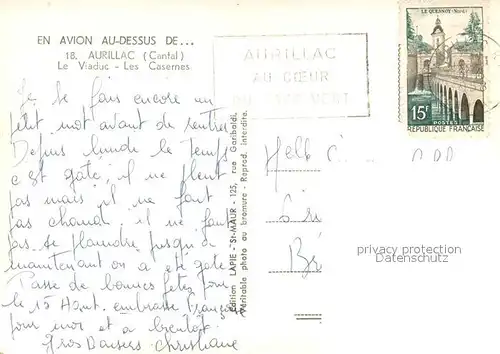 EN AVION AU-DESSUS DE...
18. AURILLAC (Cantal)
Le Viaduc - Les Casernes
AURILLAC
AU CŒUR
LE QUESNOY (Nord)
15F
POSTES
REPUBLIQUE FRANÇAISE
Je te fais encore un
petit mot avant de rentrer
Depuis lundi le temps
c'est gaté, il ne pleut
pas mais il ne fait
pas chaud. il ne faut
pas se plaindre jusqu'à
maintenant on a été gaté
Passe de bonnes fêtes pour
le 15 Août. embrasse
pour moi et a bientôt.
gros Baisers Christiane
Edition LAPIE - St-MAUR - 125, rue Garibaldi.
Véritable photo au bromure - Reprod. interdite.
privacy protection
Datenschutz